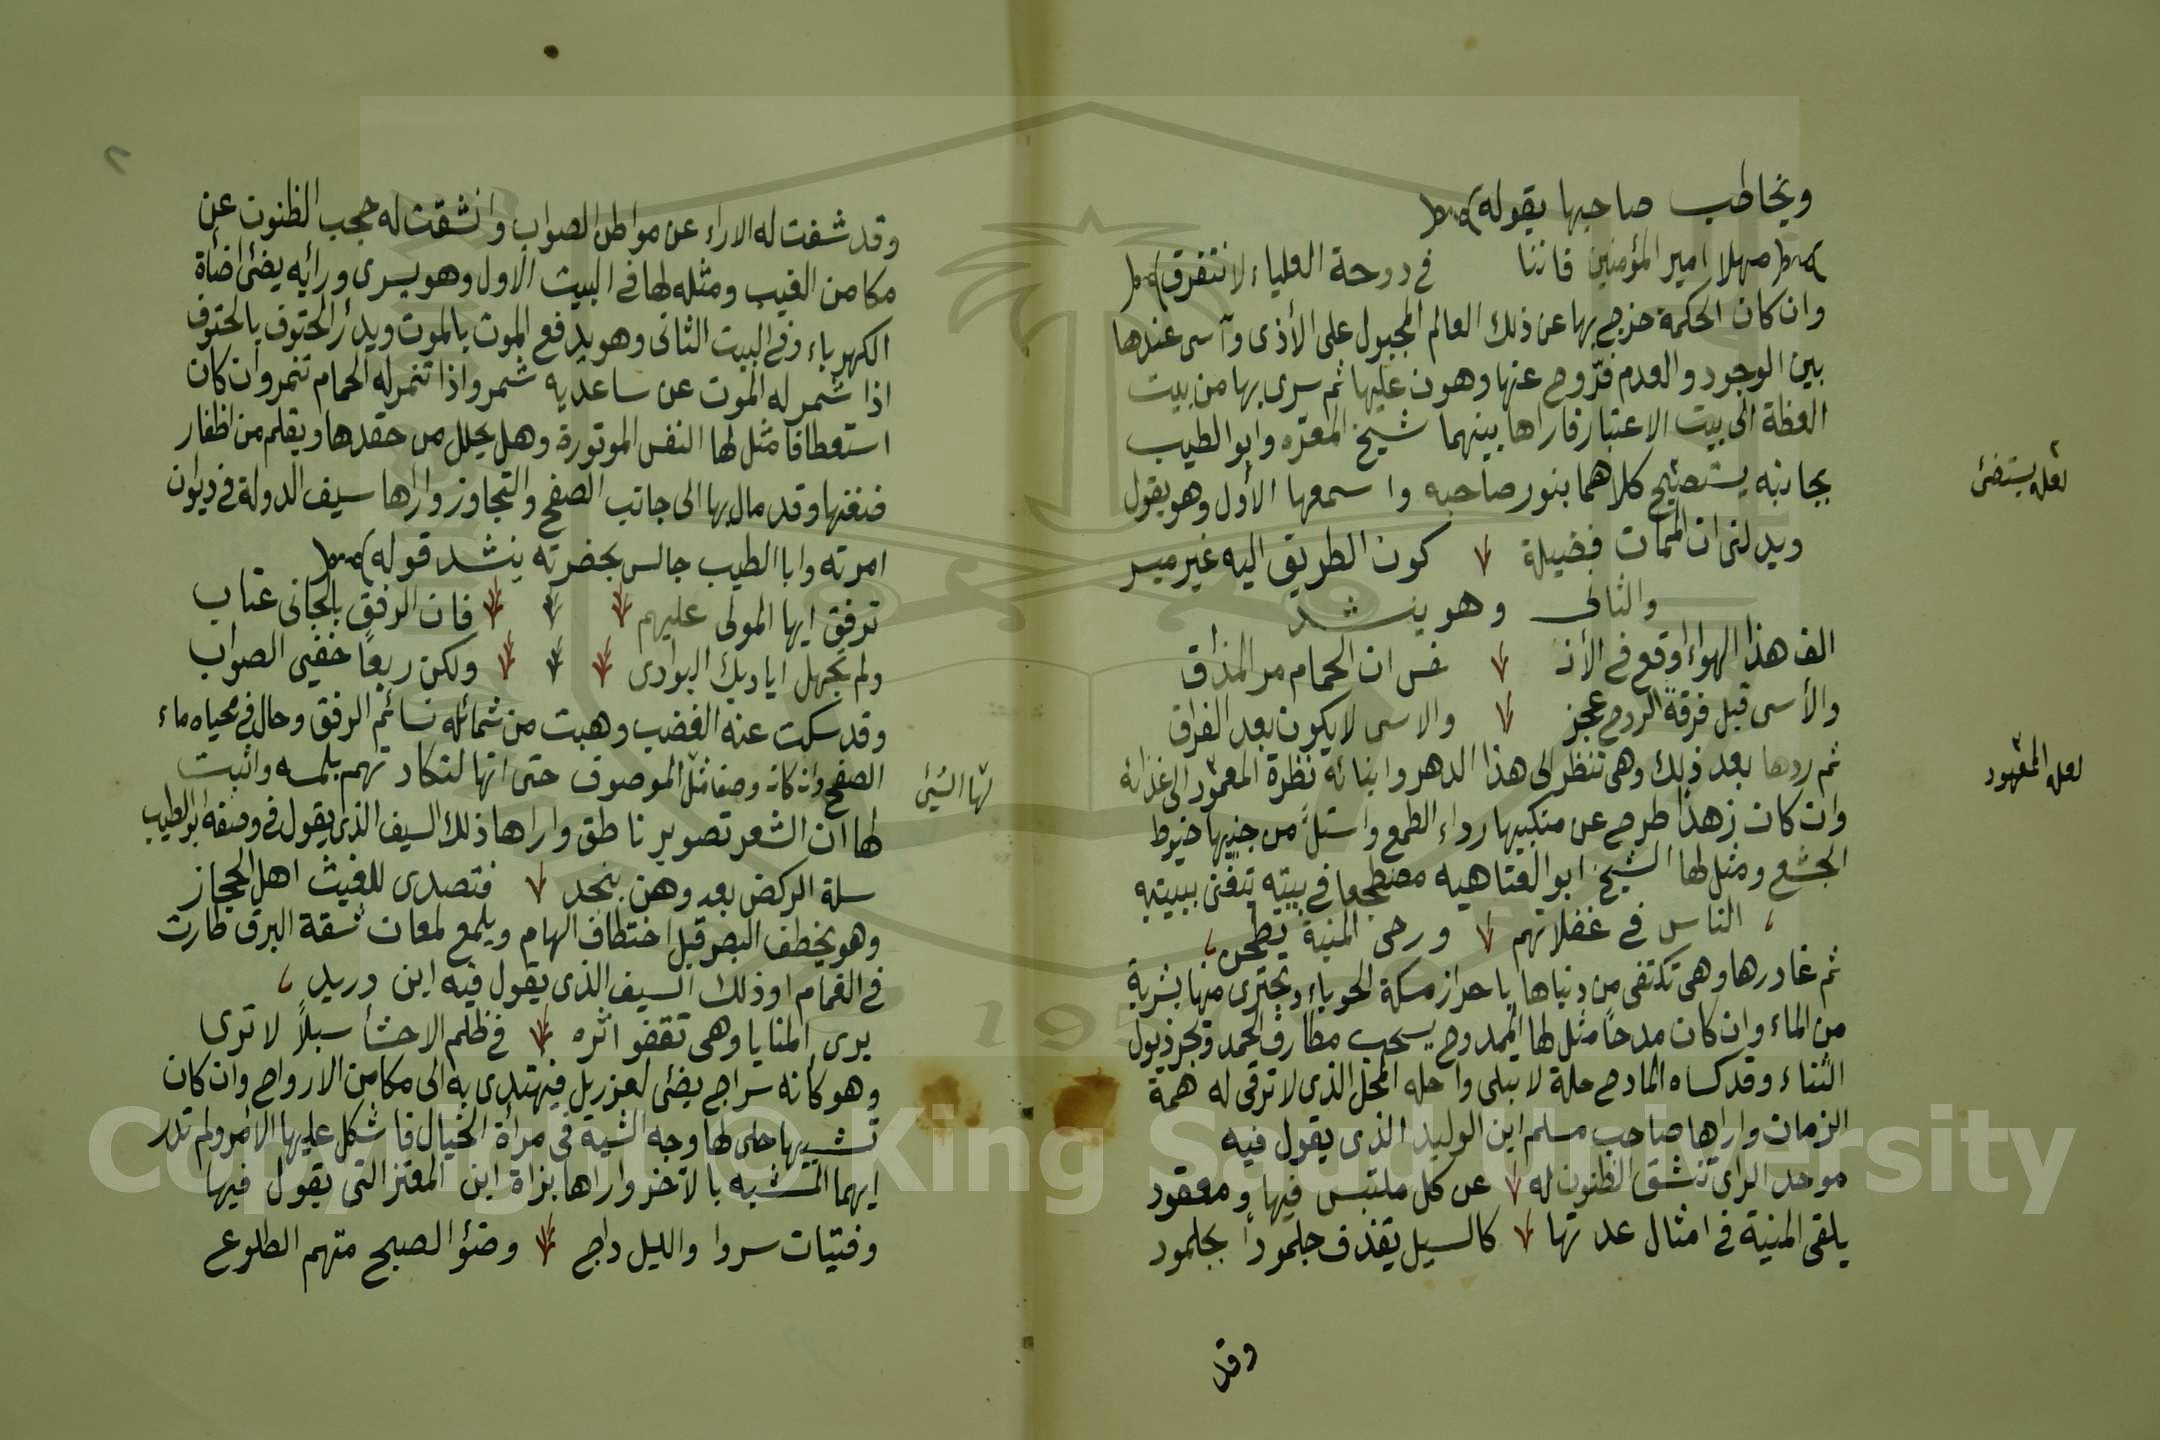 ويخاطب صاحبها بقوله
مهلا امير المؤمنين فاننا في دوحة العلياء لا نتفرق
وان كان الحكمة خرج بها عن ذلك العالم المجبول على الأذى وآسى عندها
بين الوجود والعدم فتروح عنها وهون عليها ثم سرى بها من بيت
العظة الى بيت الاعتبار فاراها بينهما شيخ المعره وابو الطيب
بجانبه يستصبح كلاهما بنور صاحبه واسمعها الأول وهو يقول
لعله يستضئ
ويدلنى ان الممات فضيلة كون الطريق اليه غير ميسر
والثانى وهو ينشد
الف هذا الهواء اوقع في الأنفس ان الحمام مر المذاق
والأسى قبل فرقة الروح عجز والاسى لا يكون بعد الفراق
ثم ردها بعد ذلك وهى تنظر الى هذا الدهر وابنائه نظرة المعمود الى غذائه
لعله المفهود
وان كان زهدا طرح عن منكبيها رداء الطمع واستل من جنبيها خيوط
الجشع ومثل لها الشيخ ابو العتاهيه مضطجعا في بيته يتغنى ببيته
الناس في غفلاتهم ورحى المنية تطحن
ثم غادرها وهى تكتفى من دنياها باحراز مسكة الحوباء وتجتزى منها بشربة
من الماء وان كان مدحاً مثل لها الممدوح يسحب مطارف الحمد وتجر ذيول
الثناء وقد كساه المادح حلة لا تبلى واحله المحل الذى لا ترقى له همة
الزمان واراها صاحب مسلم ابن الوليد الذى يقول فيه
موحد الراى تنشق الظنون له عن كل ملتبس فيها ومعقود
يلقى المنية في امثال عدتها كالسيل يقذف جلموداً بجلمود
وقد
٢
وقد شفت له الاراء عن مواطن الصواب وانشقت له حجب الظنون عن
مكامن الغيب ومثله لها في البيت الأول وهو يسرى ورائيه يضئ اضأة
الكهرباء وفي البيت الثانى وهو يدفع الموت بالموت ويدرأ الحتوف بالحتوف
اذا شمر له الموت عن ساعديه شمر واذا تنمر له الحمام تنمر وان كان
استعطافا مثل لها النفس الموتورة وهل يحلل من حقدها ويقلم من اظفار
ضغنها وقد مال بها الى جانب الصفح والتجاوز واراها سيف الدولة في ديوان
امرته وابا الطيب جالس بحضرته ينشد قوله
ترفق ايها المولى عليهم فان الرفق بالجانى عتاب
ولم تجهل اياديك البوادى ولكن ربما خفي الصواب
وقد سكت عنه الغضب وهبت من شمائله نسائم الرفق وجال في محياه ماء
الصفح وان كان وصفا مثل الموصوف حتى انها لتكاد تهم بلمسه واثبت
لها الشئ
لها ان الشعر تصوير ناطق واراها ذلك السيف الذى يقول في وصفه ابو الطيب
سلة الركض بعد وهن بنجد فتصدى للغيث اهل الحجاز
وهو يخطف البصر قبل اختطاف الهام ويلمع لمعان شقة البرق طارت
في الغمام او ذلك السيف الذى يقول فيه ابن دريد
يرى المنايا وهى تقفو اثره في ظلم الاحشأ سبلاً لا ترى
وهو كانه سراج يضئ لعزريل فيهتدى به الى مكامن الارواح وان كان
تشبيها جلى لها وجه الشبه في مرأة الخيال فاشكل عليها الأمر ولم تدر
ايهما المشبه بالآخر واراها بزاة ابن المعتز التى يقول فيها
وفتيان سروا والليل داج وضؤ الصبح متهم الطلوع
Copyright © King Saud University